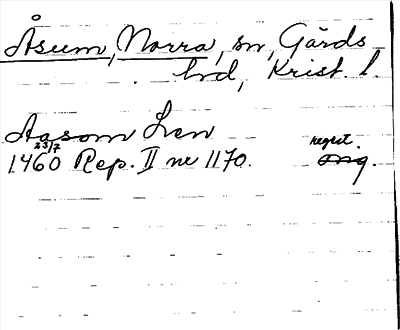 Åsum, Norra, sn, Gärds
hd, Krist. l.
Aasom Lren
23/7
1460 Rep. II nr 1170.
regist.
orig.